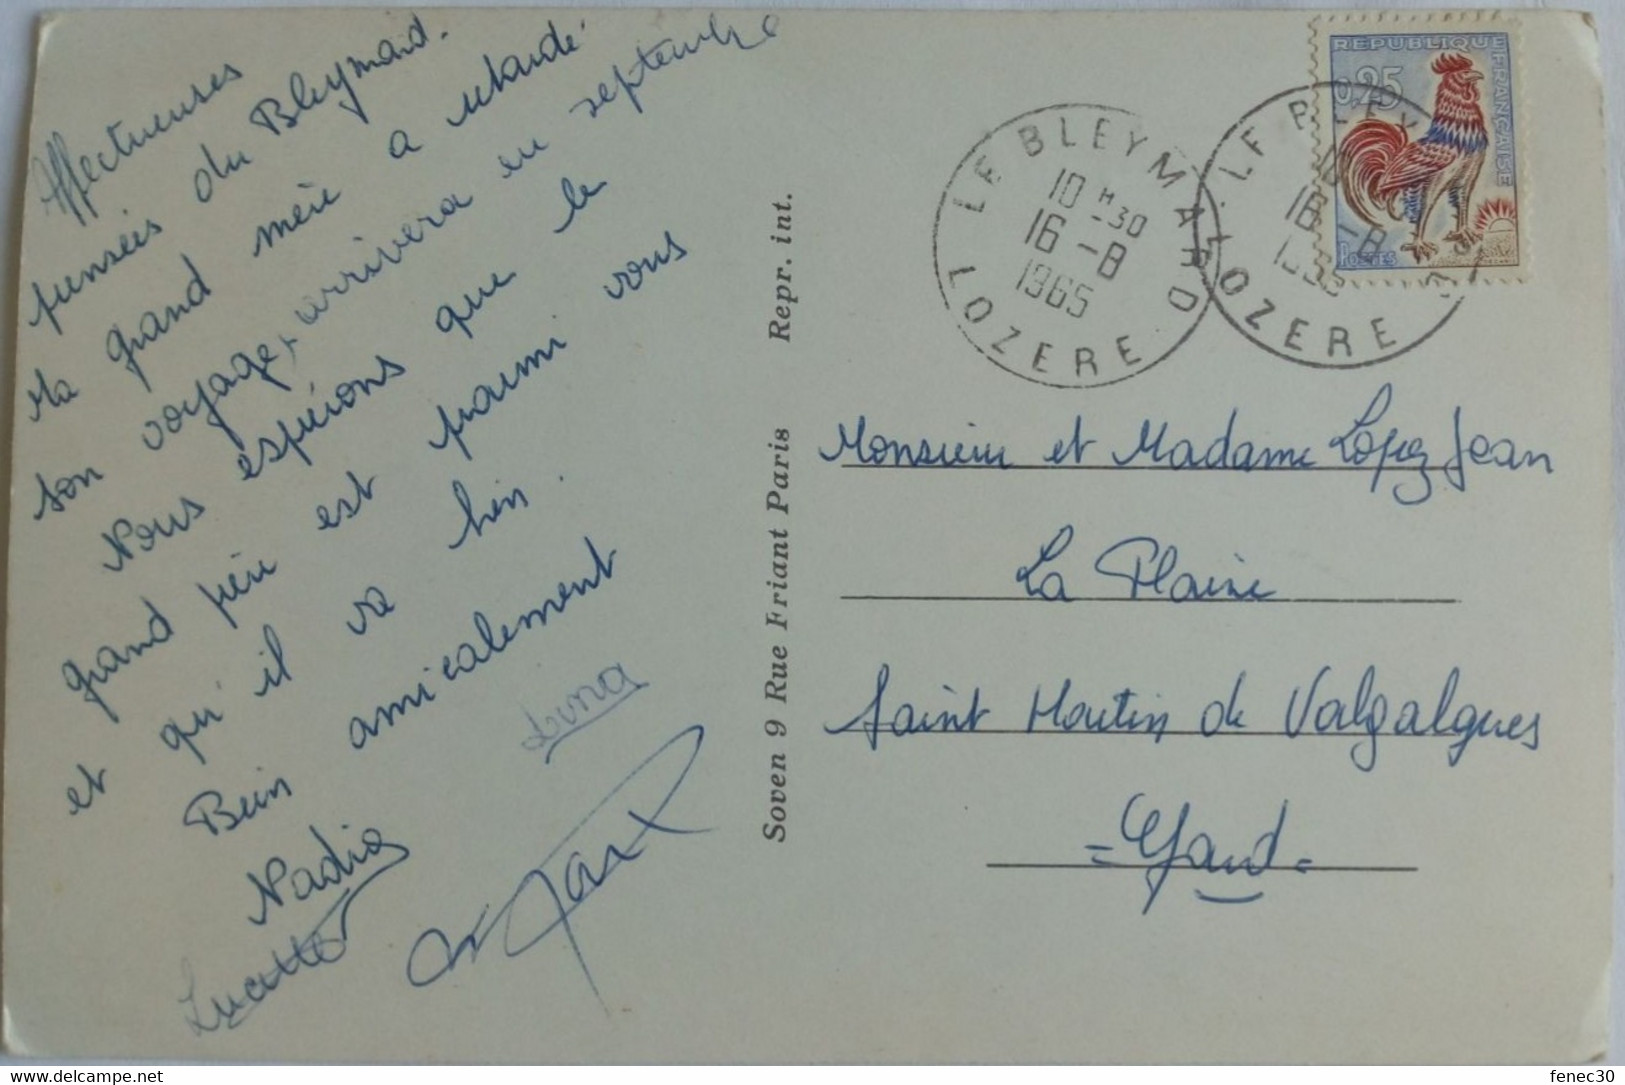 Affectueuses
pensées du Bleymard.
Ma grand mère a retardé
son voyage, arrivera en septembre
Nous espérons que le
grand père est parmi vous
et qu'il va bien.
Bien amicalement
Luna
Nadia
Lucette
Soven 9 Rue Friant Paris Repr. int.
REPUBLIQUE FRANÇAISE
0,25
POSTES
LE BLEYMARD
10 H 30
16 - 8
1965
LOZERE
LE BLEY
16 - 8
LOZERE
Monsieur et Madame Lopez Jean
La Plaine
Saint Martin de Valgalgues
= Gard =
fenec30